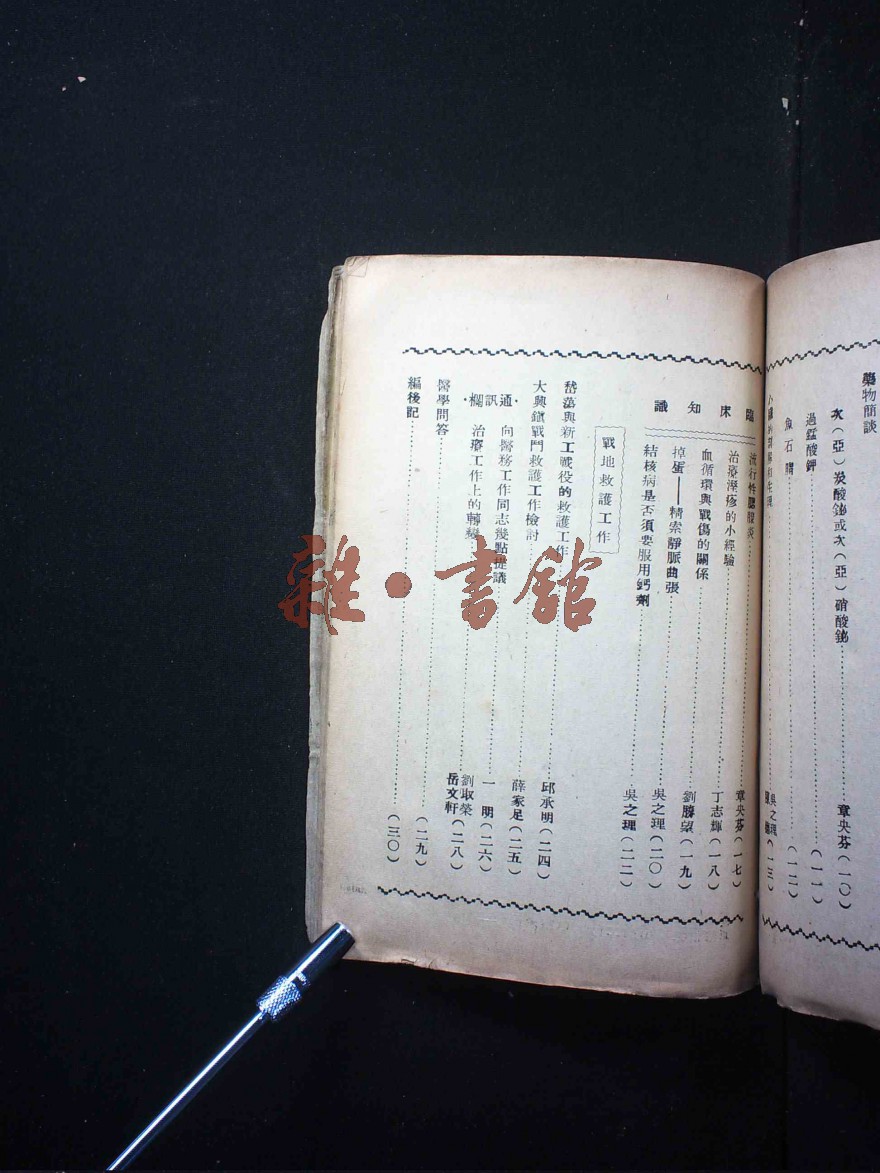 藥物簡談
次(亞)炭酸鉍或次(亞)硝酸鉍……章央芬(一〇)
過錳酸鉀……(一一)
魚石脂……(一二)
吳之理(一三)
臨床知識
流行性腮腺炎……章央芬(一七)
治療溼疹的小經驗……丁志輝(一八)
血循環與戰傷的關係……劉勝望(一九)
掉蛋——精索靜脈曲張……吳之理(二〇)
結核病是否須要服用鈣劑……吳之理(二二)
戰地救護工作
與新工戰役的救護工作……邱承明(二四)
大興鎮戰鬥救護工作檢討……薛家足(二五)
通訊欄
向醫務工作同志幾點提議……一明(二六)
治療工作上的轉變……劉取榮 岳文軒(二八)
醫學問答……(二九)
編後記……(三〇)
雜·書館